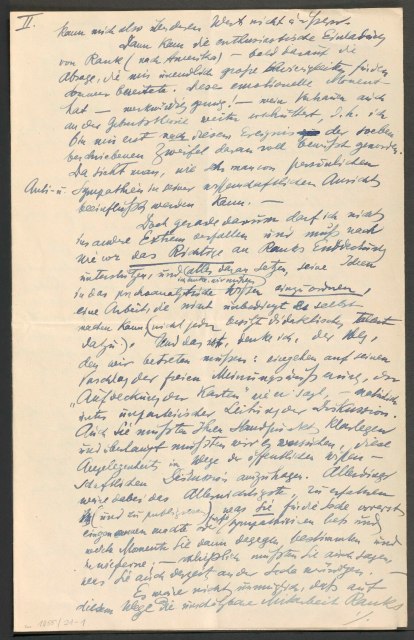 II.
kann mich also über deren Wert nicht äußern.
Dann kam die enthusiastische Einladung
von Rank (nach Amerika) – bald darauf die
Absage, die mir unendlich große Schwierigkeiten
bereitete. Dieses emotionelle Moment
hat – merkwürdig genug! – mein Vertrauen auch
an der Geburtstheorie weiter erschüttert, d. h. ich
bin mir erst nach diesem Ereignis der soeben
beschriebenen Zweifel daran voll bewusst geworden.
Da sieht man, wie sehr man von persönlichen
Anti- u. Sympathien in seiner wissenschaftlichen Ansicht
beeinflußt werden kann. –
Doch gerade darum darf ich nicht
ins andere Extrem verfallen und muß nach
wie vor das Richtige an Ranks Entdeckung
unterstützen, und alles daran setzen, seine Ideen
in das psychoanalytische Wissen einzuordnen,
eine Arbeit, die nicht unbedingt er selbst
machen kann (nicht jeder besitzt didaktisches Talent
dazu). Und das ist, denke ich, der Weg,
den wir betreten müssen: eingehen auf seinen
Vorschlag der freien Meinungsäußerung, der
„Aufdeckung der Karten“ wie er sagt –
unter unparteiischer Leitung der Diskussion.
Auch Sie müßten Ihren Standpunkt klarlegen
und überhaupt müßten wir es versuchen, diese
Angelegenheit im Wege der öffentlichen wissen-
schaftlichen Diskussion auszutragen. Allerdings
wäre dabei das Allerwichtigste, zu erfahren
(und zu publizieren), was Sie für die Sache vorerst
eingenommen machte (die Sympathien) und
welche Momente Sie dann dagegen bestimmten und
inwieferne; – schließlich müßten Sie auch sagen,
was Sie auch derzeit an der Sache würdigen. –
Es wäre nicht unmöglich, daß auf
diesem Wege die unschätzbare Mitarbeit Ranks